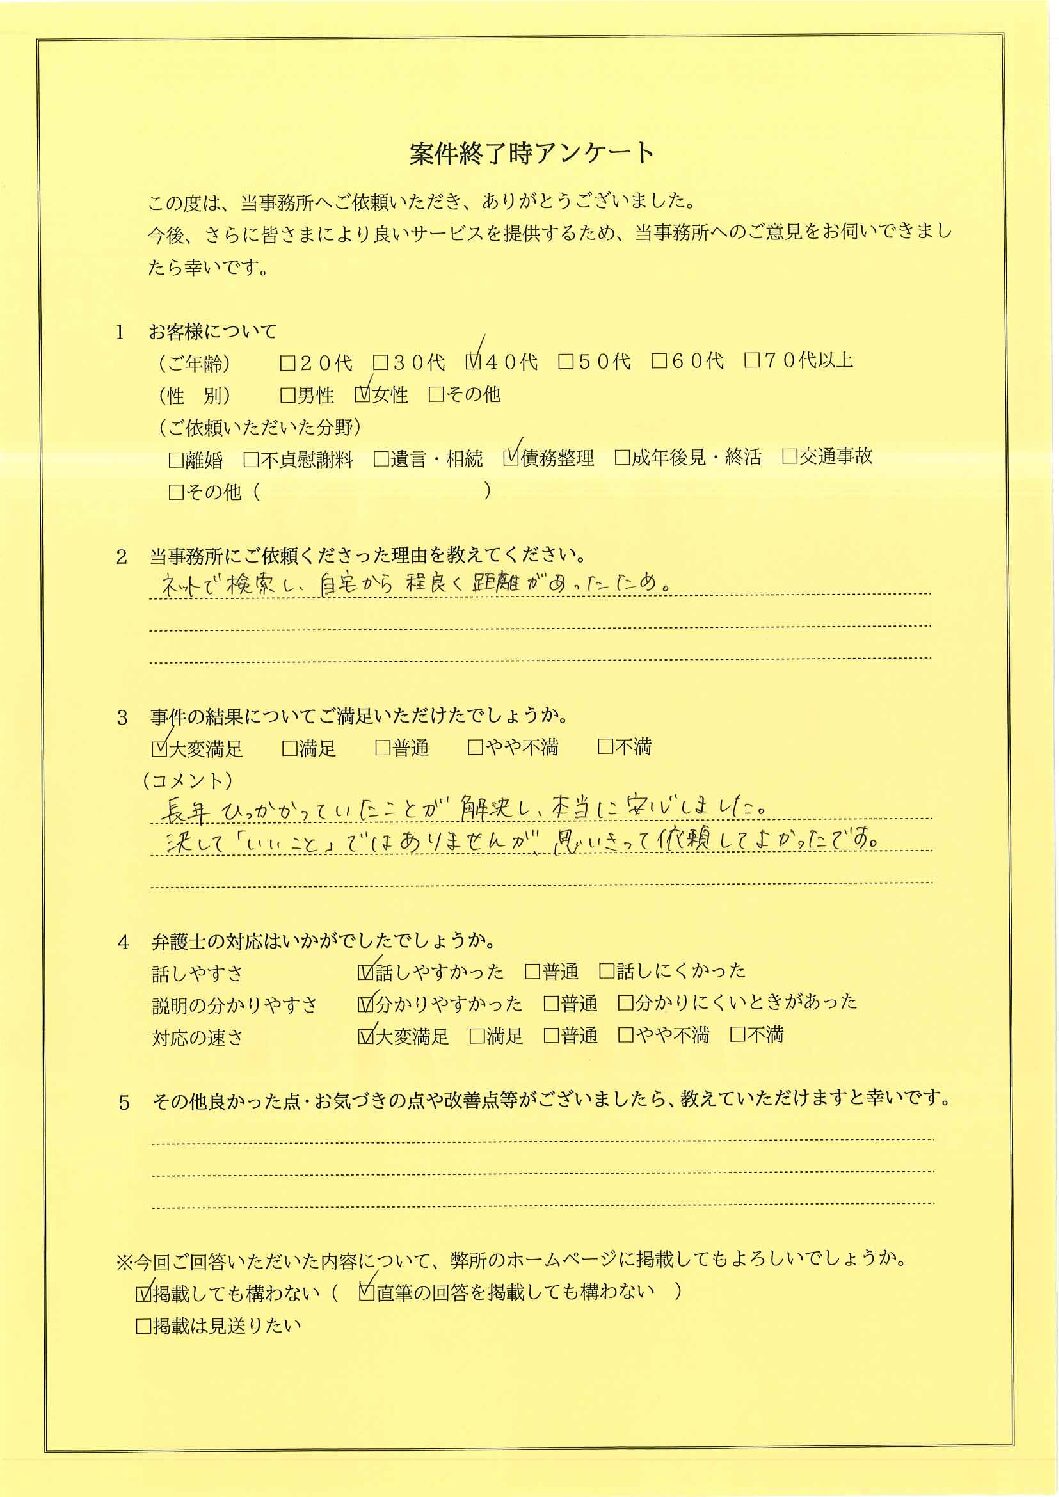 案件終了時アンケート
この度は、当事務所へご依頼いただき、ありがとうございました。
今後、さらに皆さまにより良いサービスを提供するため、当事務所へのご意見をお伺いできまし
たら幸いです。
1 お客様について
（ご年齢） □20代 □30代 ☑40代 □50代 □60代 □70代以上
（性 別） □男性 ☑女性 □その他
（ご依頼いただいた分野）
□離婚 □不貞慰謝料 □遺言・相続 ☑債務整理 □成年後見・終活 □交通事故
□その他（ ）
2 当事務所にご依頼くださった理由を教えてください。
ネットで検索し、自宅から程良く距離があったため。
3 事件の結果についてご満足いただけたでしょうか。
☑大変満足 □満足 □普通 □やや不満 □不満
（コメント）
長年ひっかかっていたことが解決し、本当に安心しました。
決して「いいこと」ではありませんが思いきって依頼してよかったです。
4 弁護士の対応はいかがでしたでしょうか。
話しやすさ ☑話しやすかった □普通 □話しにくかった
説明の分かりやすさ ☑分かりやすかった □普通 □分かりにくいときがあった
対応の速さ ☑大変満足 □満足 □普通 □やや不満 □不満
5 その他良かった点・お気づきの点や改善点等がございましたら、教えていただけますと幸いです。
※今回ご回答いただいた内容について、弊所のホームページに掲載してもよろしいでしょうか。
☑掲載しても構わない（ ☑直筆の回答を掲載しても構わない ）
□掲載は見送りたい